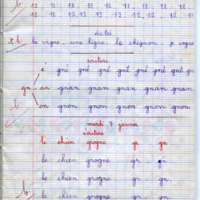 12 . 12 12 12 . 12 . 12 . 12 . 12
dictée
t.b. la vigne, une ligne, le chignon, je cogne
écriture
é gné gné gné gné gné gn
gn an gnan gnan gnan gnan
on gnon gnon gnon gnon gnon
mardi 7 janvier
écriture
le chien grogne gr gn
le chien grogne gr . gn .
le chien grogne gr . gn .
le chien grogne gr . gn .
b.